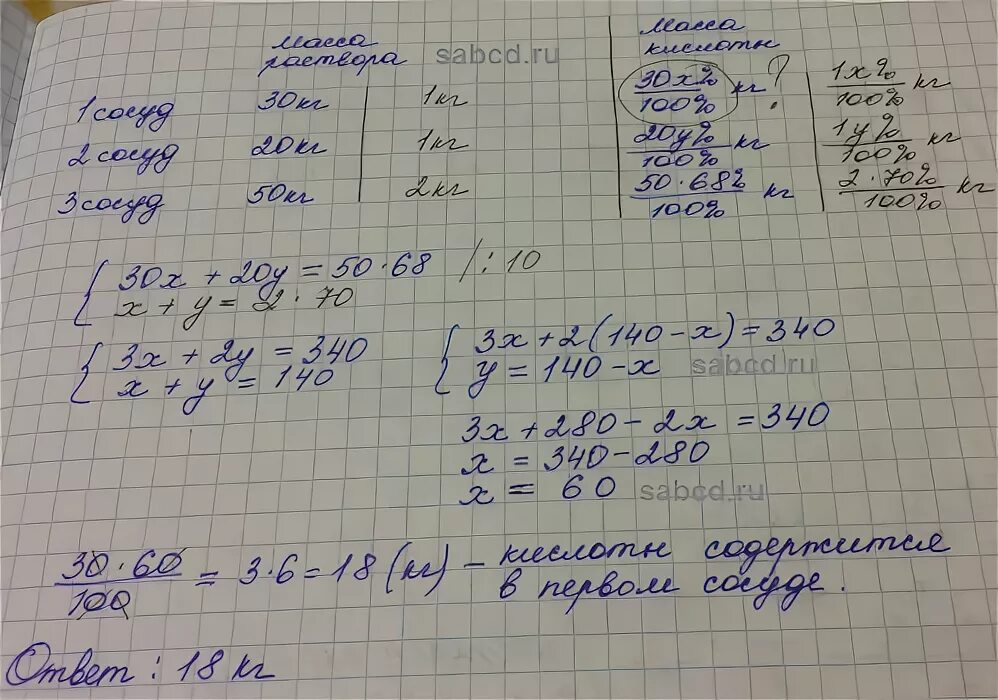 Масса раствора
sabcd.ru
Масса кислоты
1 сосуд 30кг 1кг 30x%/100% кг ? 1x%/100% кг
2 сосуд 20кг 1кг 20y%/100% кг 1y%/100% кг
3 сосуд 50кг 2кг 50·68%/100% кг 2·70%/100% кг
{ 30x + 20y = 50·68 /:10
x + y = 2·70
{ 3x + 2y = 340
x + y = 140
{ 3x + 2(140 - x) = 340
y = 140 - x
sabcd.ru
3x + 280 - 2x = 340
x = 340 - 280
x = 60
sabcd.ru
30·60/100 = 3·6 = 18 (кг) - кислоты содержится
в первом сосуде.
Ответ: 18 кг